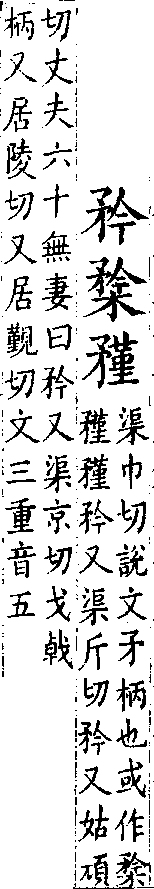 矜𥎊
渠巾切說文矛柄也或作
𥎊𥎊矜又渠斤切矜又姑頑
切丈夫六十無妻曰矜又渠京切戈戟
柄又居陵切又居覲切文三重音五